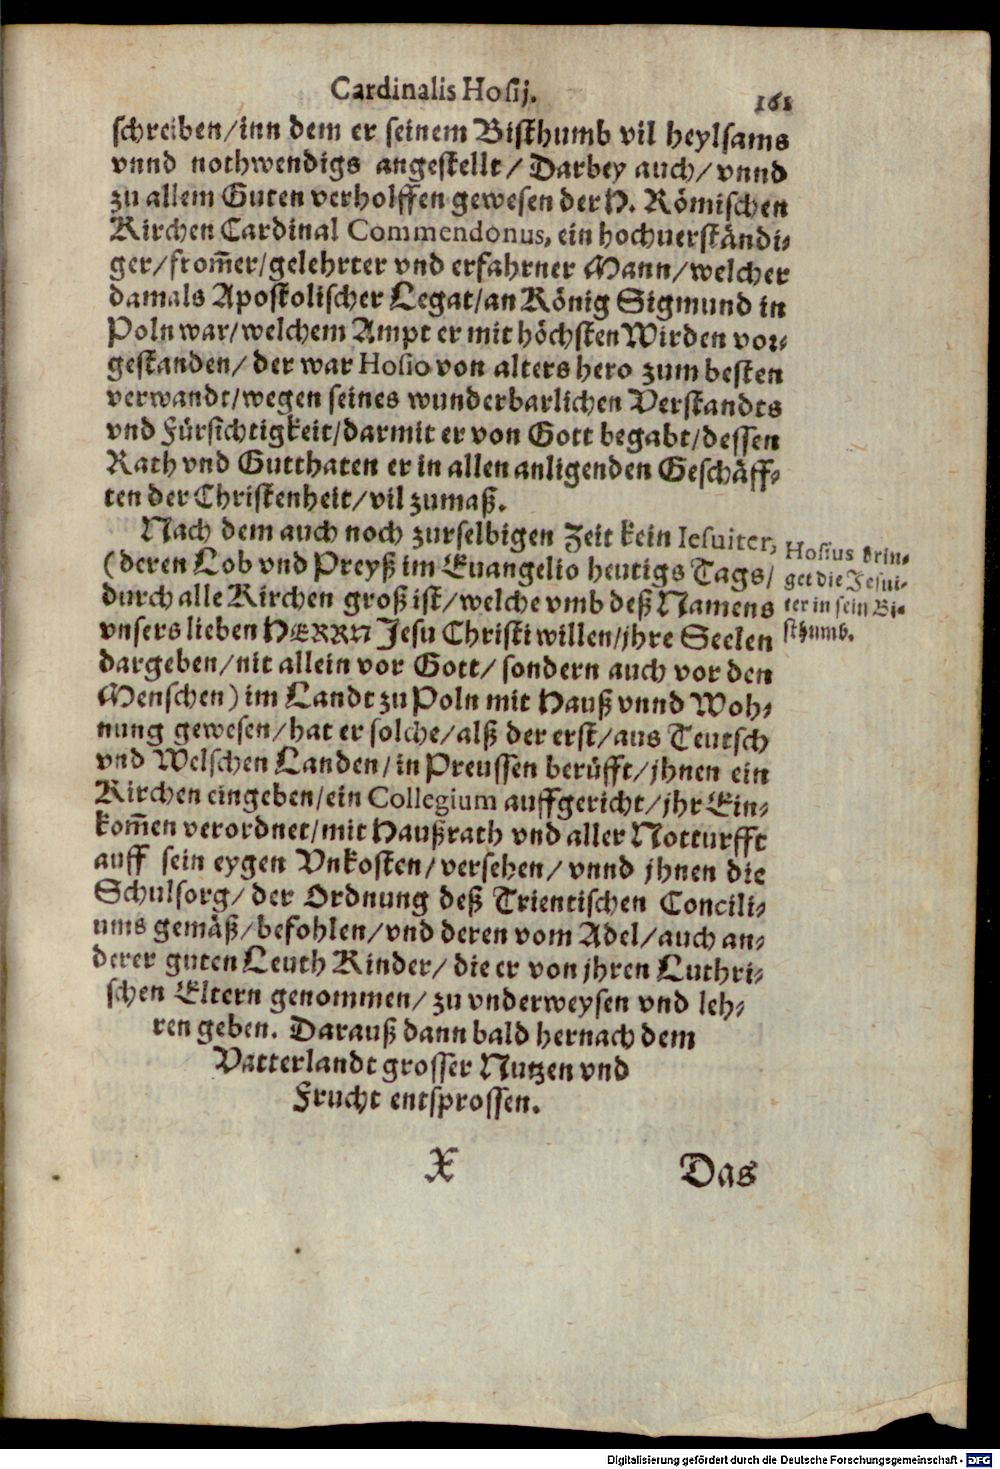 Cardinalis Hosij.
161
schreiben/inn dem er seinem Bisthumb vil heylsams
vnnd nothwendigs angestellt/ Darbey auch/ vnnd
zu allem Guten verholffen gewesen der H. Römischen
Kirchen Cardinal Commendonus, ein hochuerständi-
ger/from̃er/gelehrter vnd erfahrner Mann/welcher
damals Apostolischer Legat/an König Sigmund in
Poln war/welchem Ampt er mit höchsten Wirden vor-
gestanden/ der war Hosio von alters hero zum besten
verwandt/wegen seines wunderbarlichen Verstandts
vnd Fürsichtigkeit/darmit er von Gott begabt/dessen
Rath vnd Gutthaten er in allen anligenden Geschäff-
ten der Christenheit/vil zumaß.
Nach dem auch noch zurselbigen Zeit kein Iesuiter,
(deren Lob vnd Preyß im Euangelio heutigs Tags/
durch alle Kirchen groß ist/welche vmb deß Namens
vnsers lieben HERRN Jesu Christi willen/jhre Seelen
dargeben/nit allein vor Gott/ sondern auch vor den
Menschen) im Landt zu Poln mit Hauß vnnd Woh-
nung gewesen/hat er solche/alß der erst/aus Teutsch
vnd Welschen Landen/in Preussen berüfft/jhnen ein
Kirchen eingeben/ein Collegium auffgericht/jhr Ein-
kom̃en verordnet/mit Haußrath vnd aller Notturfft
auff sein eygen Vnkosten/versehen/vnnd jhnen die
Schulsorg/ der Ordnung deß Trientischen Concili-
ums gemäß/befohlen/vnd deren vom Adel/auch an-
derer guten Leuth Kinder/die er von jhren Luthri-
schen Eltern genommen/ zu vnderweysen vnd leh-
ren geben. Darauß dann bald hernach dem
Vatterlandt grosser Nutzen vnd
Frucht entsprossen.
Hosius brin-
get die Jesui-
ter in sein Bi-
sthumb.
X
Das
Digitalisierung gefördert durch die Deutsche Forschungsgemeinschaft - DFG